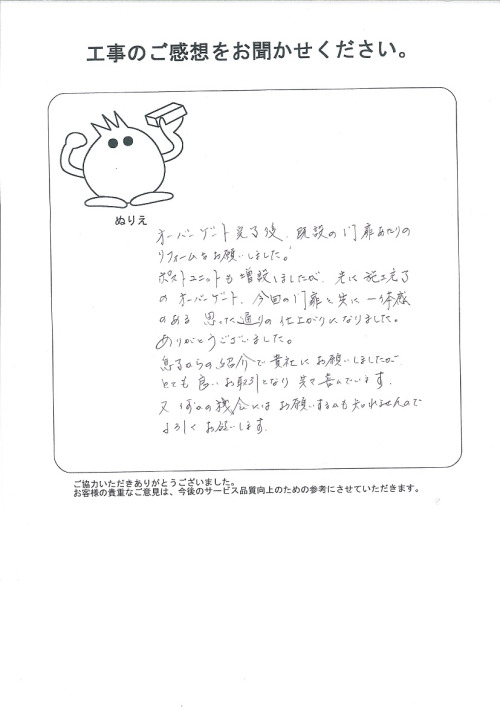 工事のご感想をお聞かせください。
ぬりえ
オーバーゲート完了後、既設の門扉あたりの
リフォームをお願いしました。
ポストユニットも増設しましたが、先に施工完了
のオーバーゲート、今回の門扉と共に一体感
のある思った通りの仕上がりになりました。
ありがとうございました。
息子からの紹介で貴社にお願いしましたが
とても良いお取引となり共々喜んでいます。
又 何かの機会にはお願いするかも知れませんので
よろしくお願いします。
ご協力いただきありがとうございました。
お客様の貴重なご意見は、今後のサービス品質向上のための参考にさせていただきます。